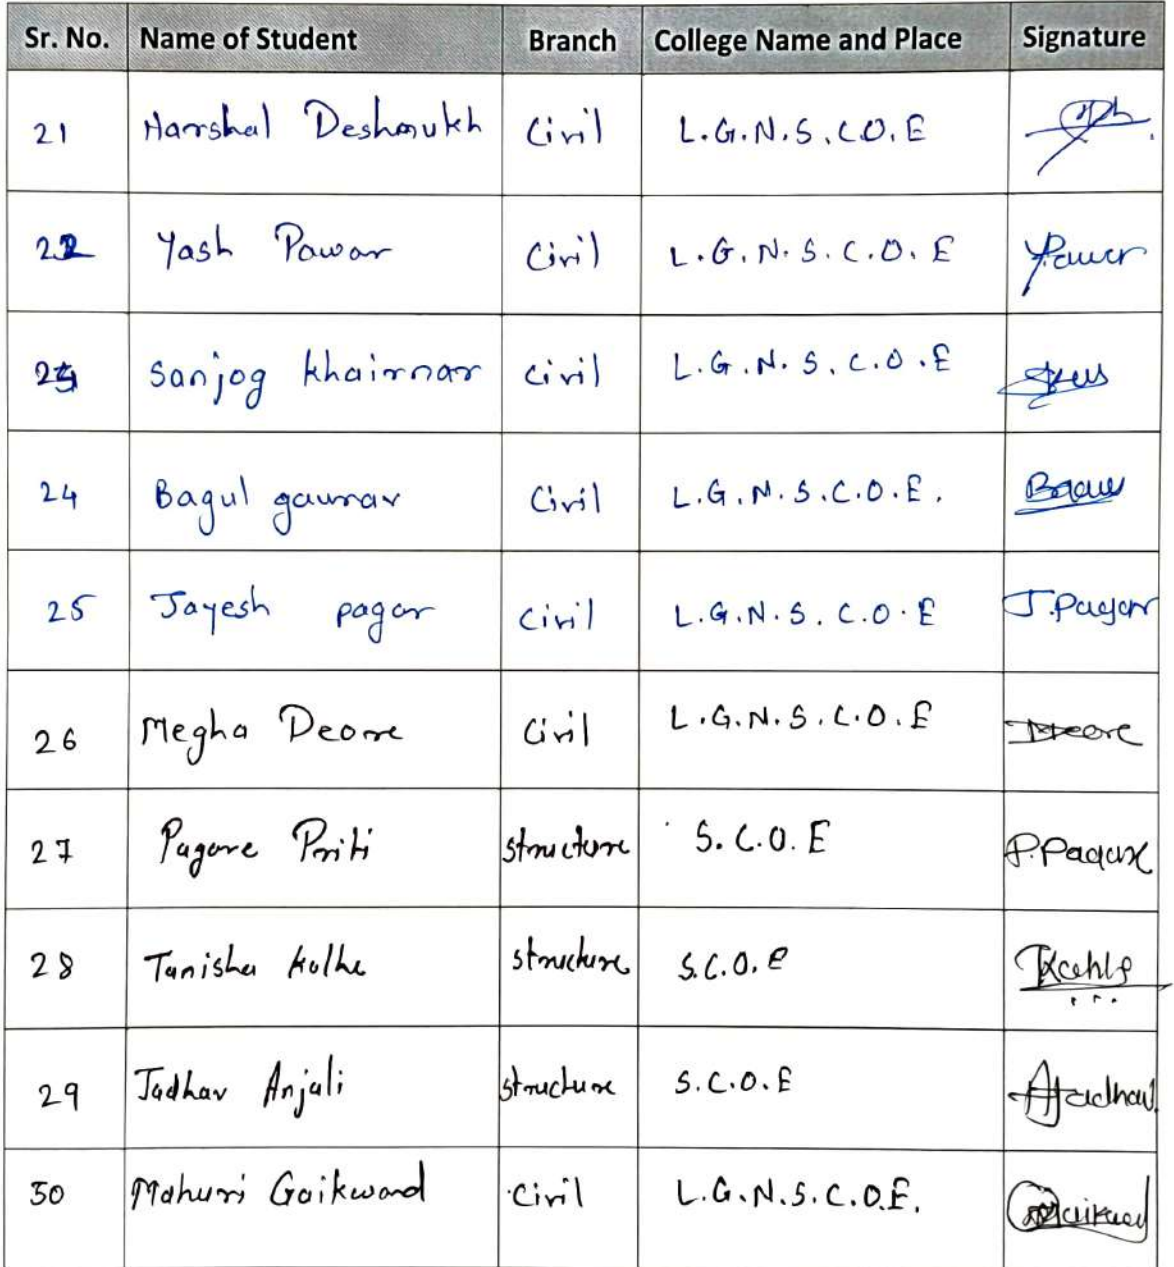 Sr. No. Name of Student Branch College Name and Place Signature
21 Harshal Deshmukh Civil L.G.N.S.C.O.E
22 Yash Pawar Civil L.G.N.S.C.O.E Pawar
Sanjog khairnar Civil L.G.N.S.C.O.E
24 Bagul gaurav Civil L.G.N.S.C.O.E.
25 Jayesh pagar Civil L.G.N.S.C.O.E J.Pagar
26 Megha Deore Civil L.G.N.S.C.O.E Deore
27 Pagare Priti structure S.C.O.E P.Pagare
28 Tanisha Kolhe structure S.C.O.E
29 Jadhav Anjali structure S.C.O.E AJadhav
30 Mahuri Gaikwad Civil L.G.N.S.C.O.E.